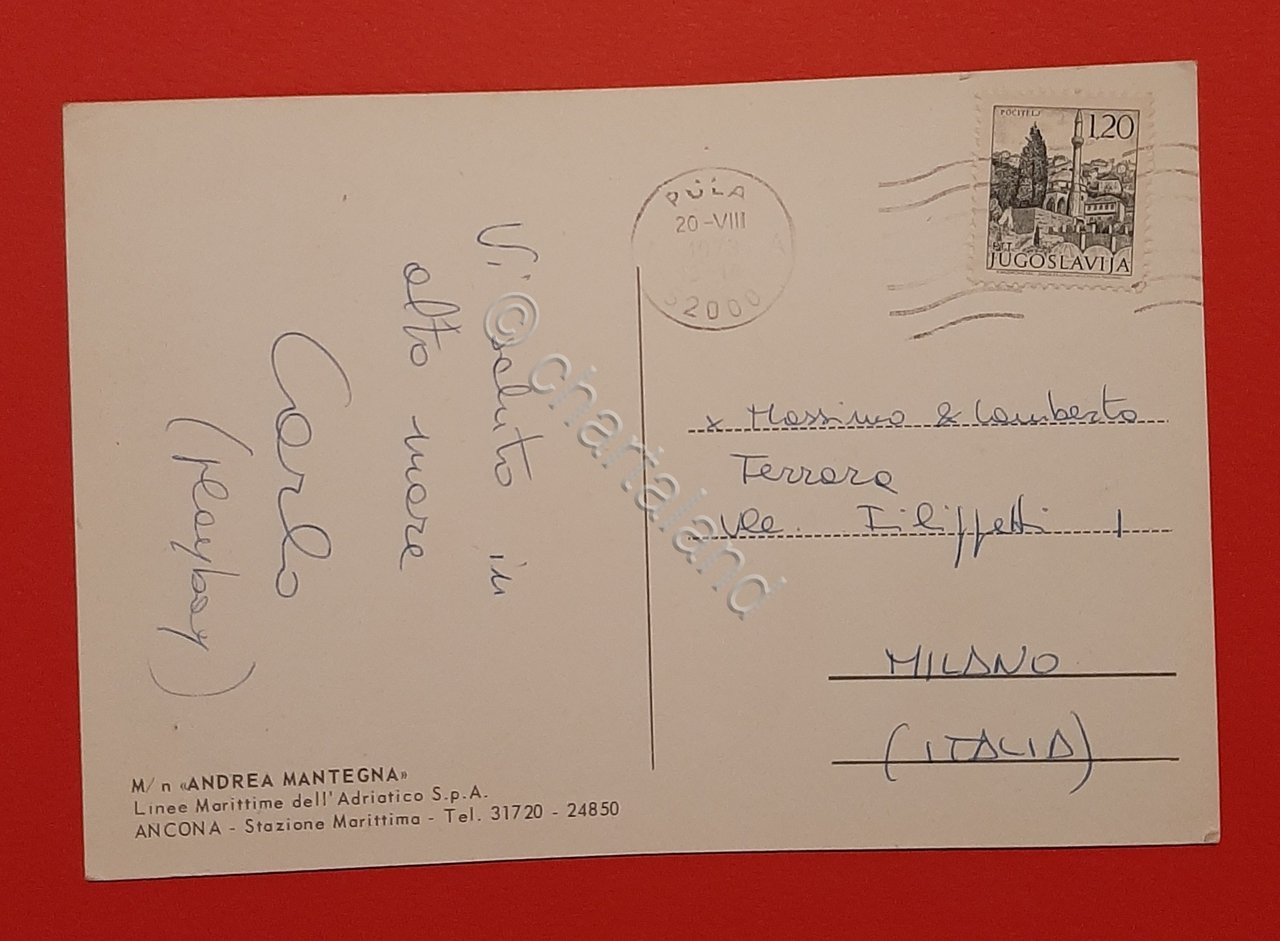 POČITELJ
1,20
PTT
JUGOSLAVIJA
PULA
20-VIII
52000
Vi saluto in
alto mare
Carlo
(playboy)
x Massimo & Lamberto
Ferrara
Vle. Filippetti 1
MILANO
(ITALIA)
M/n «ANDREA MANTEGNA»
Linee Marittime dell'Adriatico S.p.A.
ANCONA - Stazione Marittima - Tel. 31720 - 24850
© chartaland